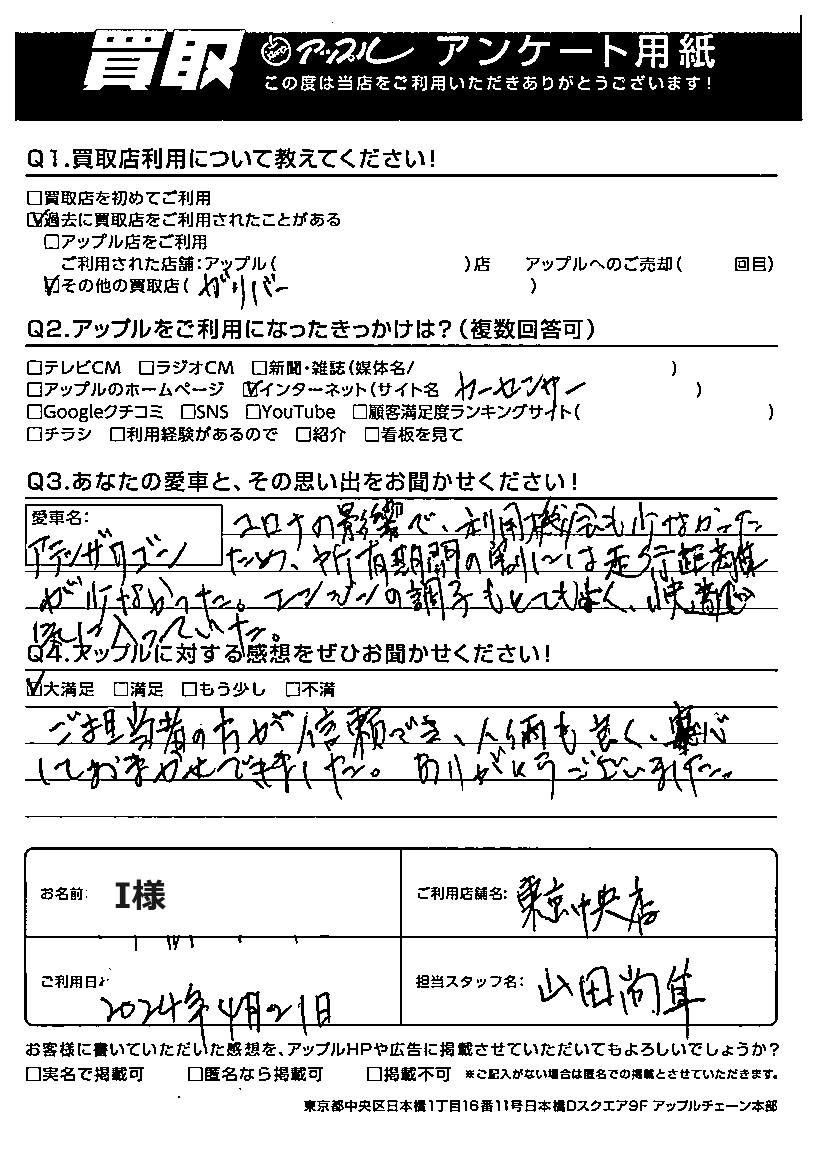 買取 アップル アンケート用紙
この度は当店をご利用いただきありがとうございます!
Q1.買取店利用について教えてください!
□買取店を初めてご利用
☑過去に買取店をご利用されたことがある
□アップル店をご利用
ご利用された店舗:アップル( )店 アップルへのご売却( 回目)
☑その他の買取店( ガリバー )
Q2.アップルをご利用になったきっかけは?(複数回答可)
□テレビCM □ラジオCM □新聞・雑誌(媒体名/ )
□アップルのホームページ ☑インターネット(サイト名 カーセンサー )
□Googleクチコミ □SNS □YouTube □顧客満足度ランキングサイト( )
□チラシ □利用経験があるので □紹介 □看板を見て
Q3.あなたの愛車と、その思い出をお聞かせください!
愛車名:
アテンザワゴン
コロナの影響で、利用機会も少なかった
ため、所有期間の割には走行距離
が少なかった。エンジンの調子もとても良く、快適で
気に入っていた。
Q4.アップルに対する感想をぜひお聞かせください!
☑大満足 □満足 □もう少し □不満
ご担当者の方が信頼でき、人柄も良く、安心
しておまかせできました。ありがとうございました。
お名前: I様
ご利用店舗名: 東京中央店
ご利用日: 2024年4月21日
担当スタッフ名: 山田尚
お客様に書いていただいた感想を、アップルHPや広告に掲載させていただいてもよろしいでしょうか?
□実名で掲載可 □匿名なら掲載可 □掲載不可 ※ご記入がない場合は匿名での掲載とさせていただきます。
東京都中央区日本橋1丁目16番11号日本橋Dスクエア9F アップルチェーン本部